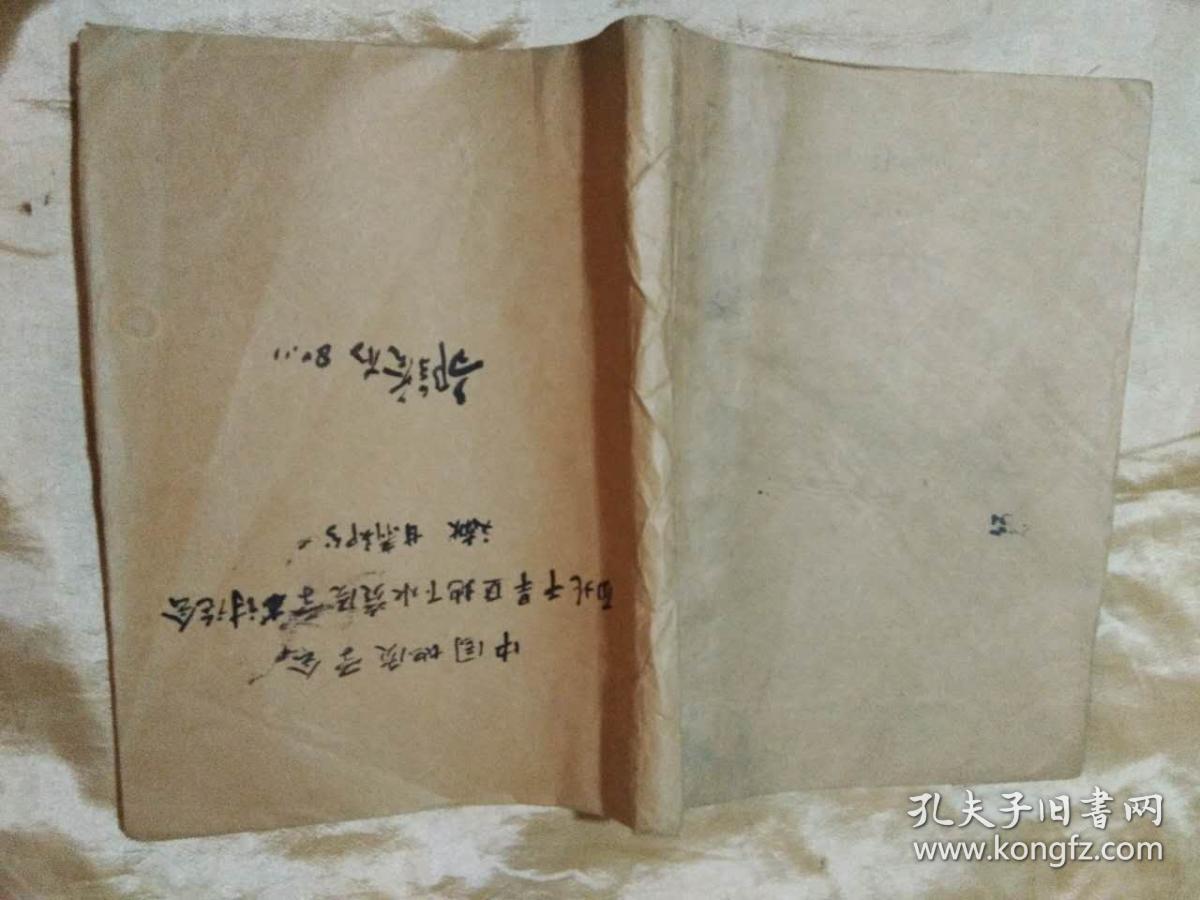 中国地质学会
西北干旱区地下水资源学术讨论会
甘肃部分
80.11
孔夫子旧书网
www.kongfz.com